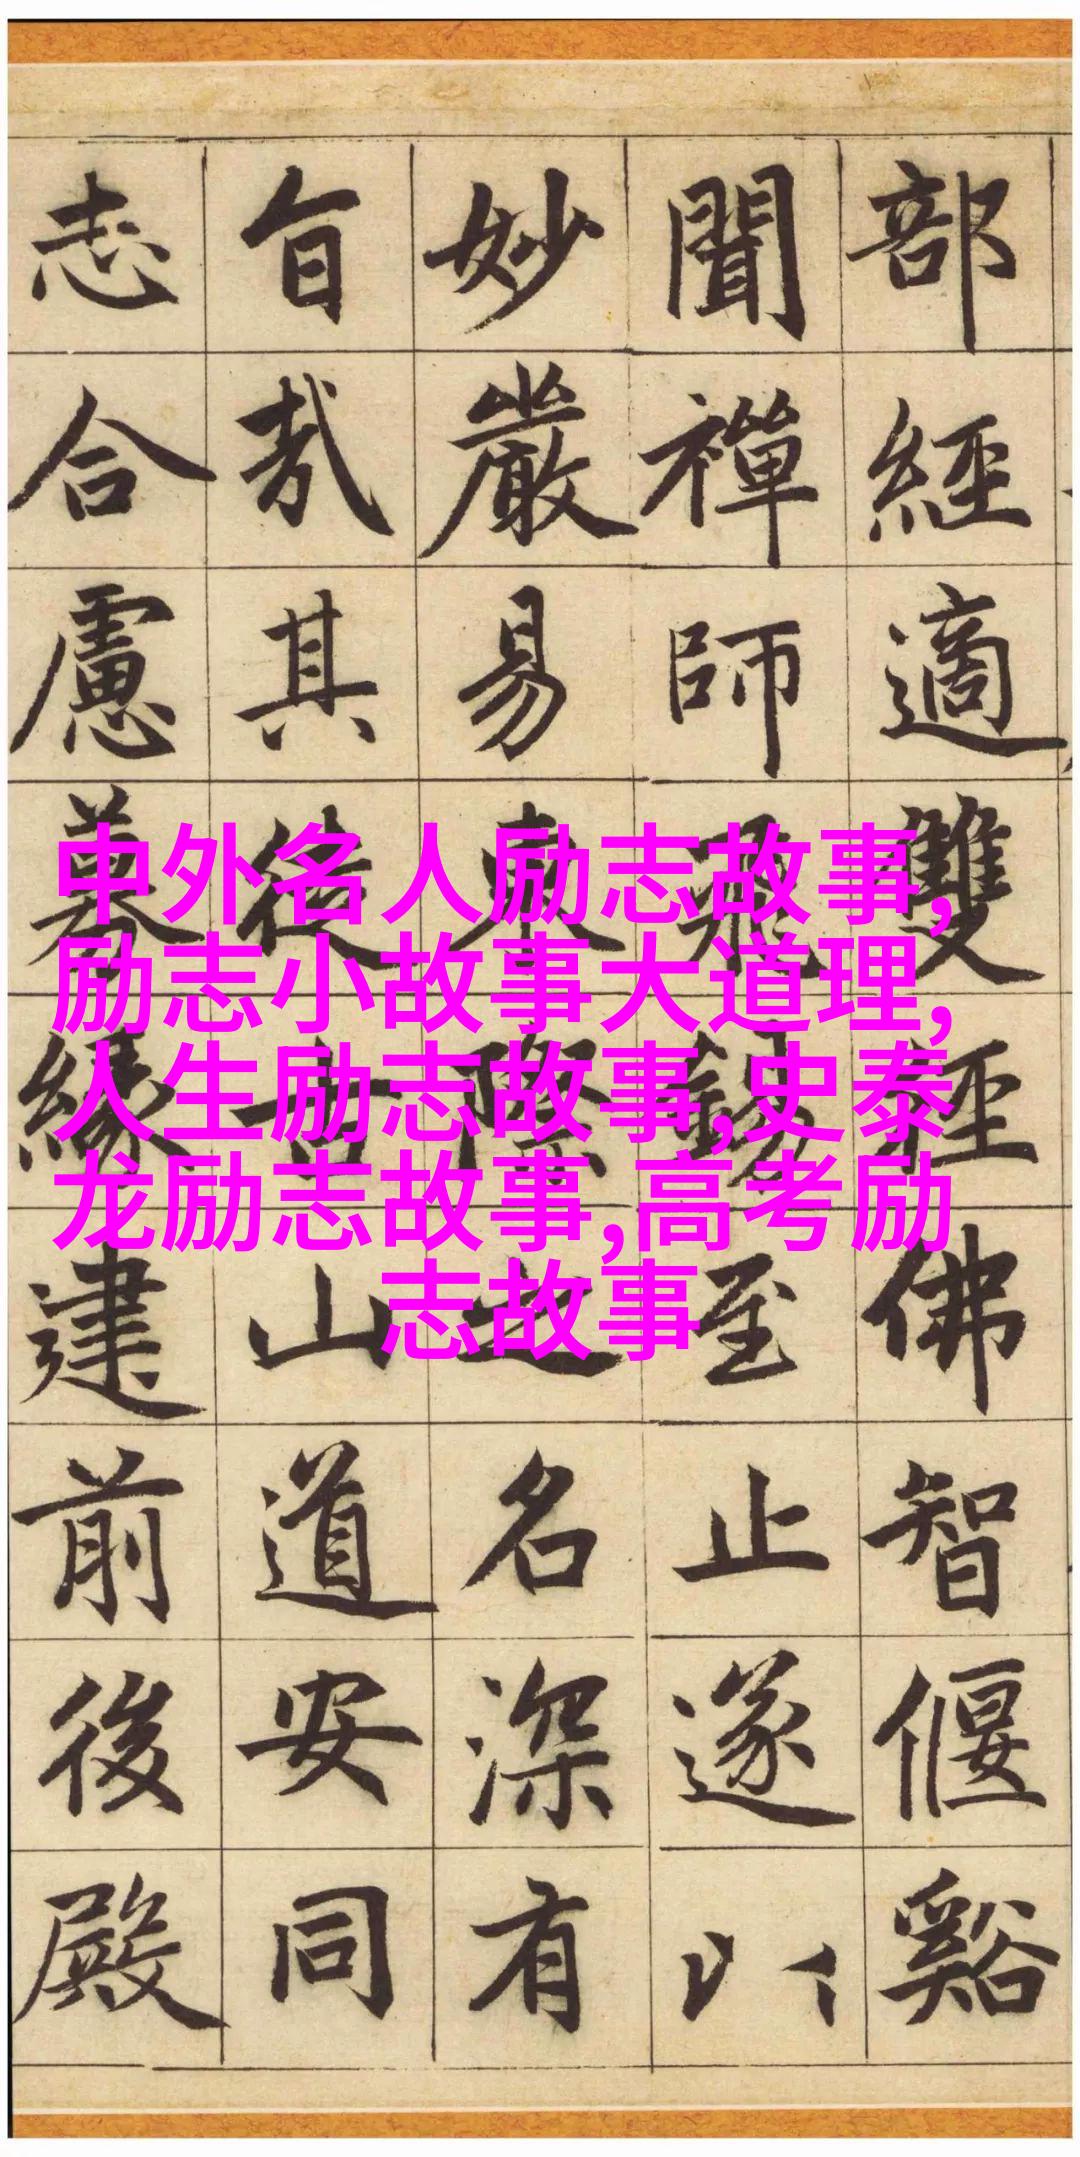 部經適雙徑佛智偃谿
聞禪師飛錫至止遂以
妙嚴易東際之名深有
旨哉其徒古山道安同
志合慮募緣建前後殿
中外名人励志故事,
励志小故事大道理,
人生励志故事,史泰
龙励志故事,高考励
志故事